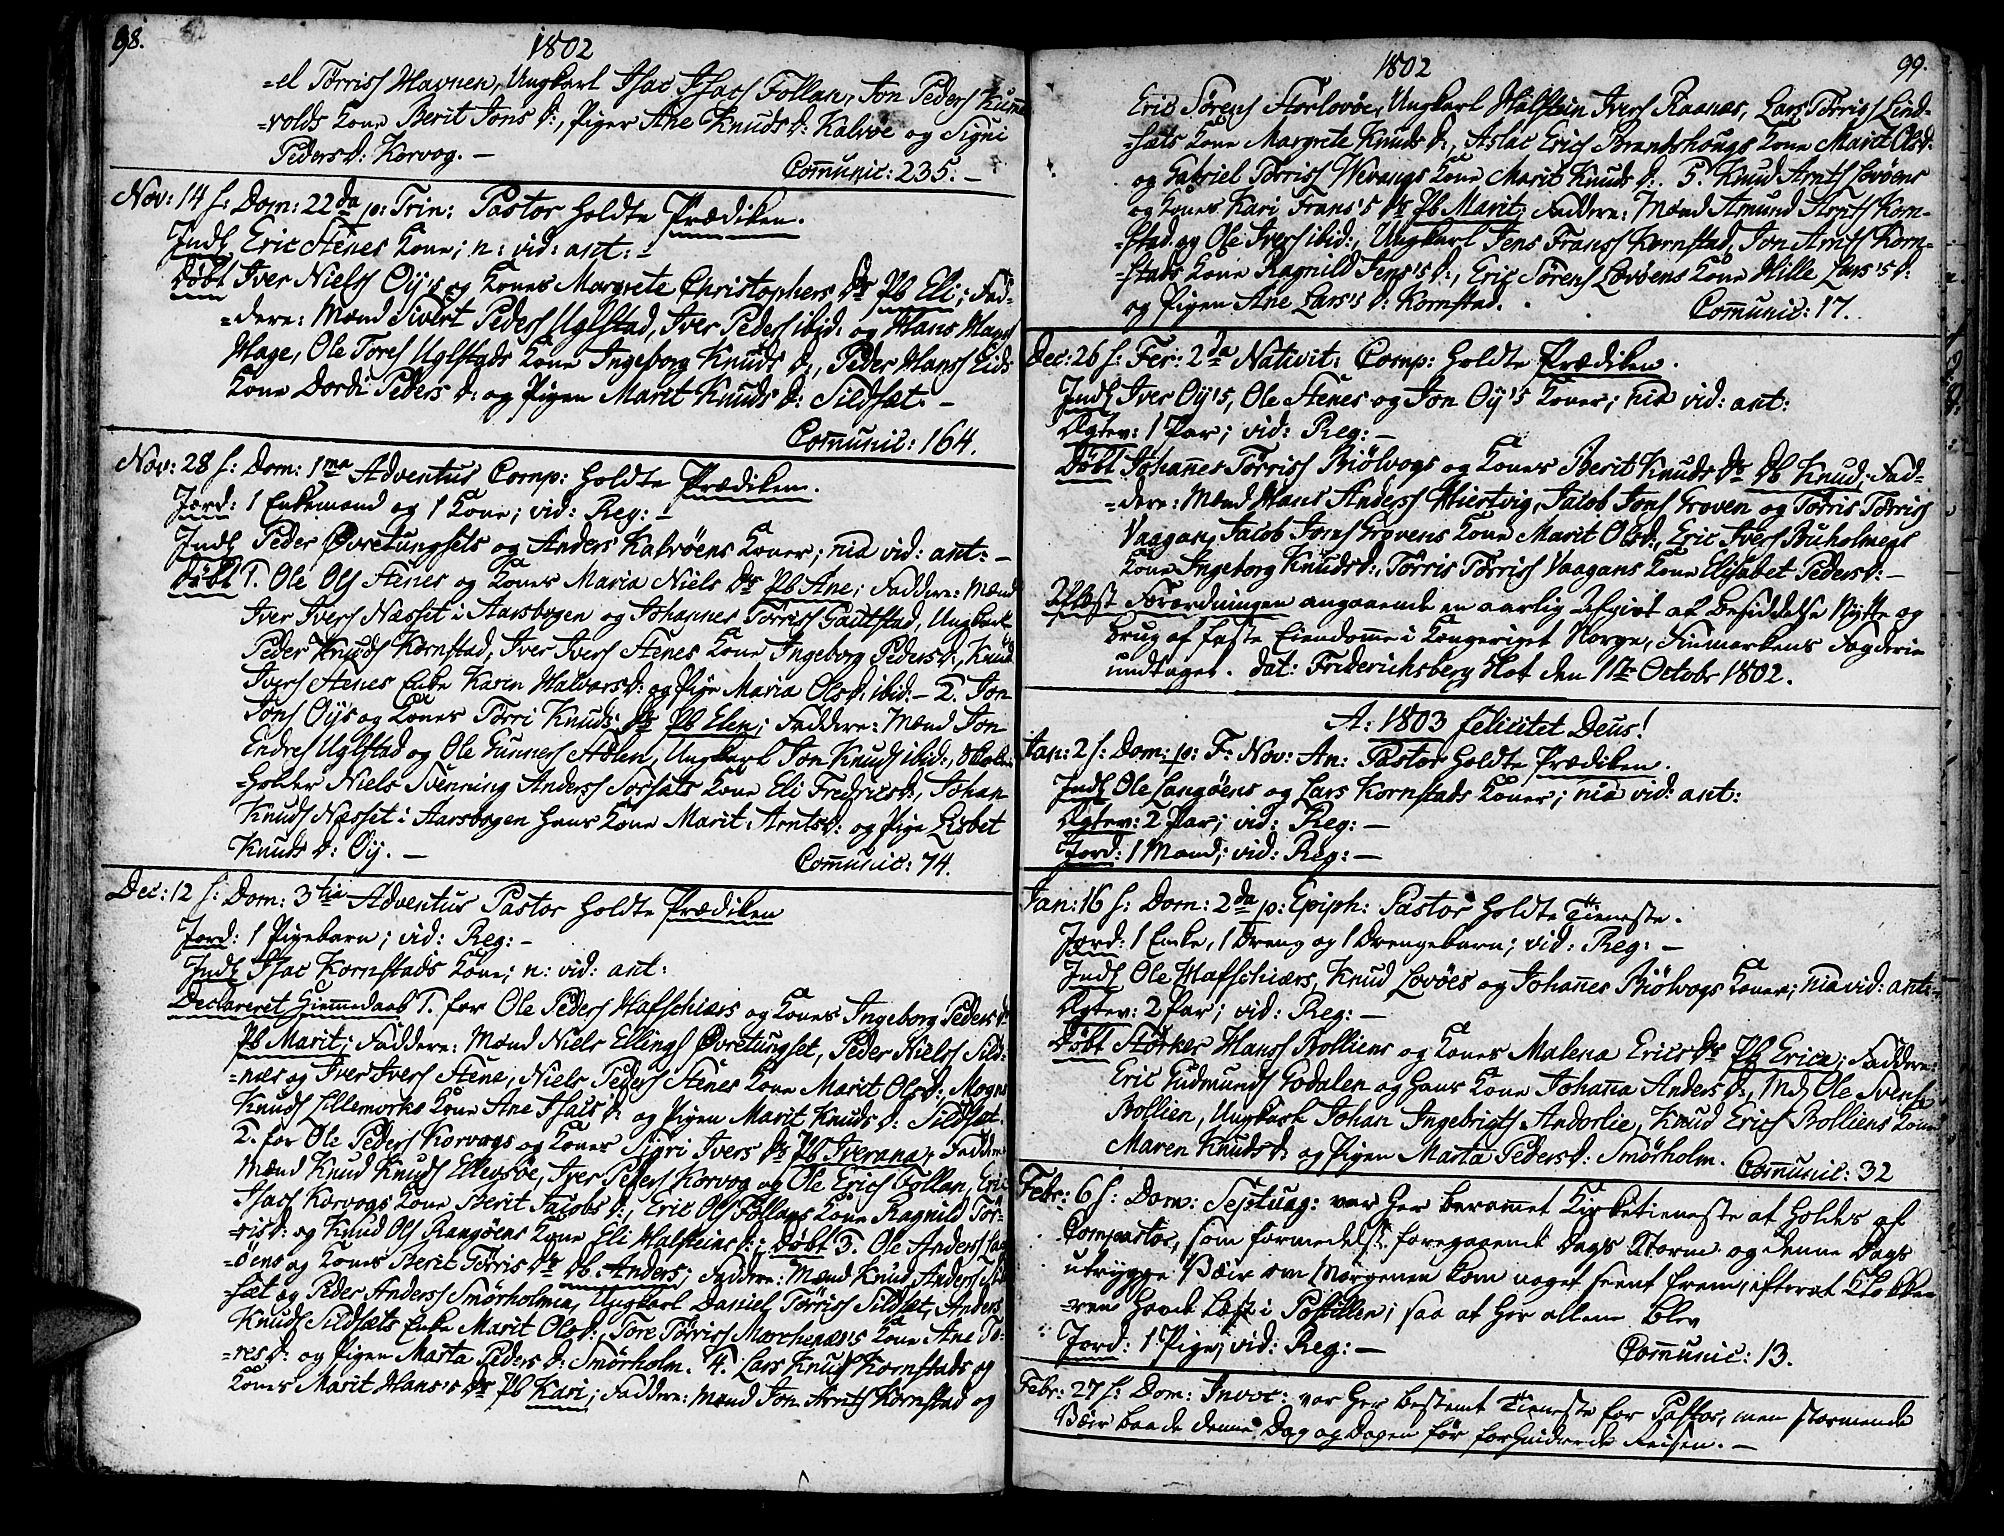 98.
1802
=el Tørriss Havnen, Ungkarl Isac Isacs Follan, Jon Peders Kund
=volds Kone Berit Jons D:, Piger Ane Knuds D: Kalvøe og Signi
Peders D: Korvog. —
Comunic: 235. —
Nov: 14 h: Dom: 22da p: Trin: Pastor holdte Prædiken.
Indl Eric Stenes Kone; n: vid: ant: —
Døbt Iver Niels Oÿ's og Kones Margrete Christophers Dr PB Eli; Fad=
=dere: Mænd Sivert Peders Uglstad, Iver Peders ibid: og Hans Hans
Hage, Ole Tores Uglstads Kone Ingeborg Knuds D:, Peder Hanss Eids
Kone Dordi Peders D: og Pigen Marit Knuds D: Sildset. —
Comunic: 164.
Nov: 28 h: Dom: 1ma Adventus Comp: holdte Prædiken.
Jord: 1 Enkemand og 1 Kone; vid: Reg: —
Indl Peder Øvretungsets og Anders Kalvøens Koner; nia vid: ant: —
Døbt 1. Ole Ols Stenes og Kones Maria Niels Dr PB Ane; Faddere: Mænd
Iver Ivers Næsset i Aarsbogen og Johannes Tørriss Gautstad, Ungkarl
Peder Knuds Kornstad, Iver Ivers Stenes Kone Ingeborg Peders D:, Knud
Ivers Stenes Enke Karen Halvors D: og Pige Maria Ols D: ibid: — 2. Jon
Jons Oÿs og Kones Tørri Knuds Dr PB Elen; Faddere: Mænd Jon
Endres Uglstad og Ole Gunners Aslen, Ungkarl Jon Knuds ibid:, Skole=
=holder Niels Svenning Anderss Sorsæts Kone Eli Fredrics D:, Johan
Knuds Næsset i Aarsbogen hans Kone Marit Arnts D: og Pige Lisbet
Knuds D: Oÿ. —
Comunic: 74.
Dec: 12 h: Dom: 3tia Adventus Pastor holdte Prædiken
Jord: 1 Pigebarn; vid: Reg: —
Indl Isac Kornstads Kone; n: vid: ant:
Declareret Hiemmedaab 1. for Ole Peders Hafschiærs og Kones Ingeborg Peders D:
PB Marit; Faddere: Mænd Niels Ellings Øvretungset, Peder Niels Sild=
=næs og Iver Ivers Stene, Niels Peders Stenes Kone Marit Ols D: Mogns
Knuds Lillemorks Kone Ane Isacs D: og Pigen Marit Knuds D: Sildsæt.
2. for Ole Peders Korvogs og Kones Sigri Ivers Dr PB Iverana; Faddere
Mænd Knud Knuds Ellevsøe, Iver Peders Korvog og Ole Erics Follan, Eric
Isacs Korvogs Kone Berit Jacobs D:, Eric Ols Follans Kone Ragnild Tør=
=ris D: og Knud Ols Rangøens Kone Eli Halsteins D:; Døbt 3. Ole Anders Lang
=øens og Kones Berit Tørris Dr DB: Anders; Faddere: Mænd Knud Anders Sild
sæt og Peder Anderss Smørholmen, Ungkarl Daniel Tørriss Sildsæt, Anders
Knuds Sildsæts Enke Marit Ols D:, Tore Tørriss Marchenæs's Kone Ane To=
=res D: og Pigen Marta Peders D: Smørholm. 4. Lars Knuds Kornstads og
Kones Marit Hans's Dr PB Kari; Faddere: Mænd Jon Arnts Kornstad og
99.
1802
Eric Sørens Storlovøe, Ungkarl Halstein Ivers Raanæs, Lars Tørriss Lind=
=sæts Kone Margrete Knuds D:, Aslac Erics Brandshougs Kone Marit Ols D:
og Gabriel Tørriss Wevangs Kone Marit Knuds D:. 5. Knud Arnts Lovøens
og Kones Kari Frans's Dr PB Marit; Faddere: Mænd Amund Arnts Korn=
=stad og Ole Ivers ibid:, Ungkarl Jens Franss Kornstad, Jon Arnts Korn=
=stads Kone Ragnild Jens's D:, Eric Sørens Lovøens Kone Hille Lars's D:
og Pigen Ane Lars's D: Kornstad.
Comunic: 17.
Dec: 26 h: Fer: 2da Nativit: Comp: holdte Prædiken.
Indl Iver Oÿ's, Ole Stenes og Jon Oÿ's Koner; nia vid: ant:
Ægtev: 1 Par; vid: Reg: —
Døbt Johannes Tørriss Biølvogs og Kones Berit Knuds Dr DB Knud; Fad=
=dere: Mænd Hans Anderss Hiertvig, Jacob Jons Groven og Tørris Tørriss
Vaagan, Jacob Jons Grovens Kone Marit Ols D:, Eric Ivers Buholmens
Kone Ingeborg Knuds D:, Tørris Tørriss Vaagans Kone Elisabet Peders D: —
Oplæst Forordningen angaaende en aarlig Afgivt af Besiddelse Nytte og
Brug af faste Eiendomme i Kongeriget Norge, Finmarkens Fogderie
undtaget. dat: Friderichsberg Slot den 1ste Octobr 1802.
A: 1803 felicitet Deus!
Jan: 2 h: Dom: p: F: Nov: An: Pastor holdte Prædiken.
Indl Ole Langøens og Lars Kornstads Koner; nia vid: ant:
Ægtev: 2 Par; vid: Reg: —
Jord: 1 Mand; vid: Reg: —
Jan: 16 h: Dom: 2da p: Epiph: Pastor holdte Tieneste.
Jord: 1 Enke, 1 Dreng og 1 Drengebarn; vid: Reg: —
Indl Ole Hafschiærs, Knud Lovøes og Johannes Biølvogs Koner; nia vid: ant: —
Ægtev: 2 Par; vid: Reg: —
Døbt Størker Hanss Bolliens og Kones Malena Erics Dr PB Erica; Faddere:
Eric Gudmunds Godalen og hans Kone Johanna Anders D:, Md Ole Svens
Bollien, Ungkarl Johan Ingebrigts Andorlie, Knud Erics Bolliens Kone
Maren Knuds D: og Pigen Marta Peders D: Smørholm.
Comunic: 32
Febr: 6 h: Dom: Septuag: var her berammet Kirketieneste at holdes af
Compastor, som formedelst foregaaende Dags Storm og denne Dags
utrygge Veir om Morgenen kom noget seent frem, efterat Klokke=
=ren havde læst i Postillen; saa at her allene blev
Jord: 1 Pige; vid: Reg: —
Comunic: 13.
Febr: 27 h: Dom: Invoc: var her bestemt Tieneste for Pastor, men stormende
Veir baade denne Dag og Dagen før forhindrede Reisen. —